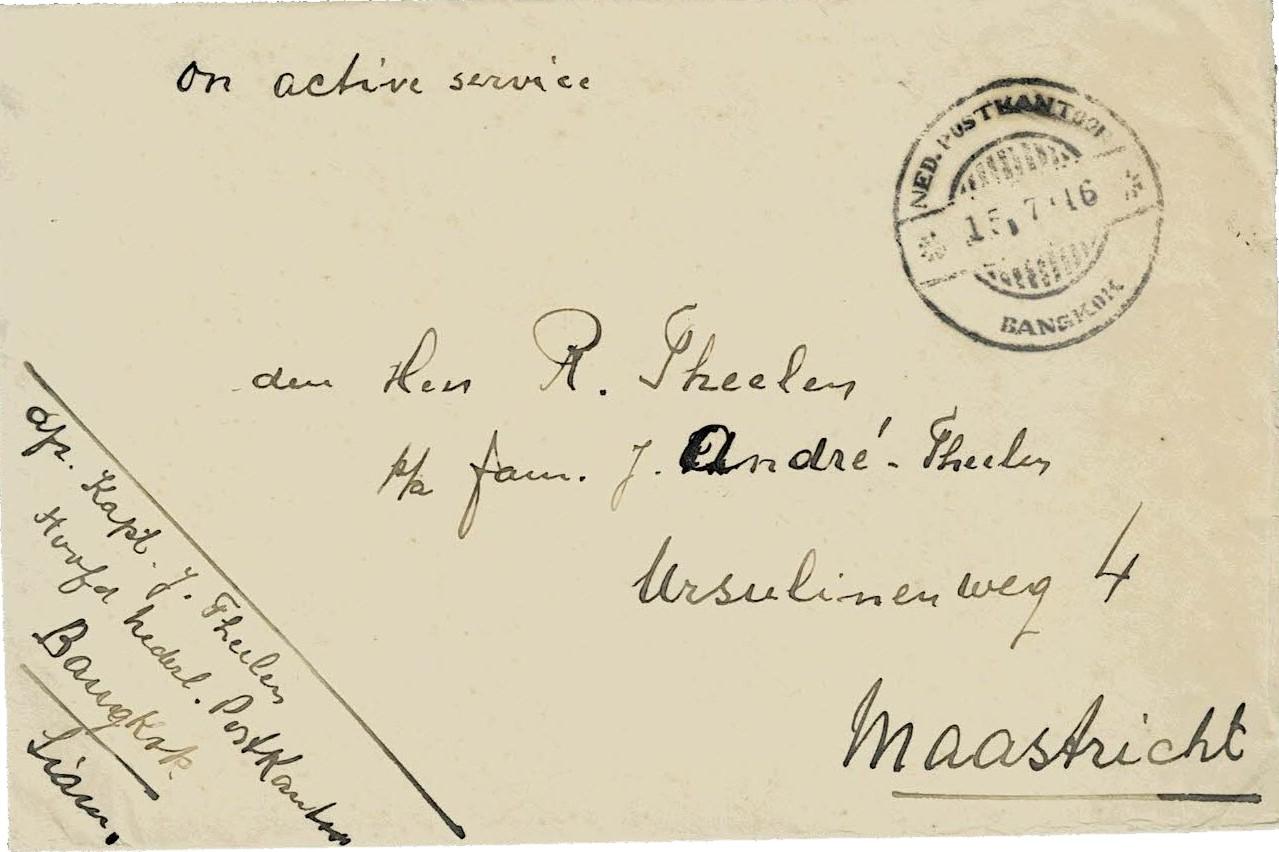 on active service
NED. POSTKANTOOR
15.7.16
BANGKOK
den Heer R. Theelen
p/a fam. J. André-Theelen
Ursulinenweg 4
Maastricht
afz. Kapt. J. Theelen
Hoofd Nederl. Postkantoor
Bangkok
Siam.